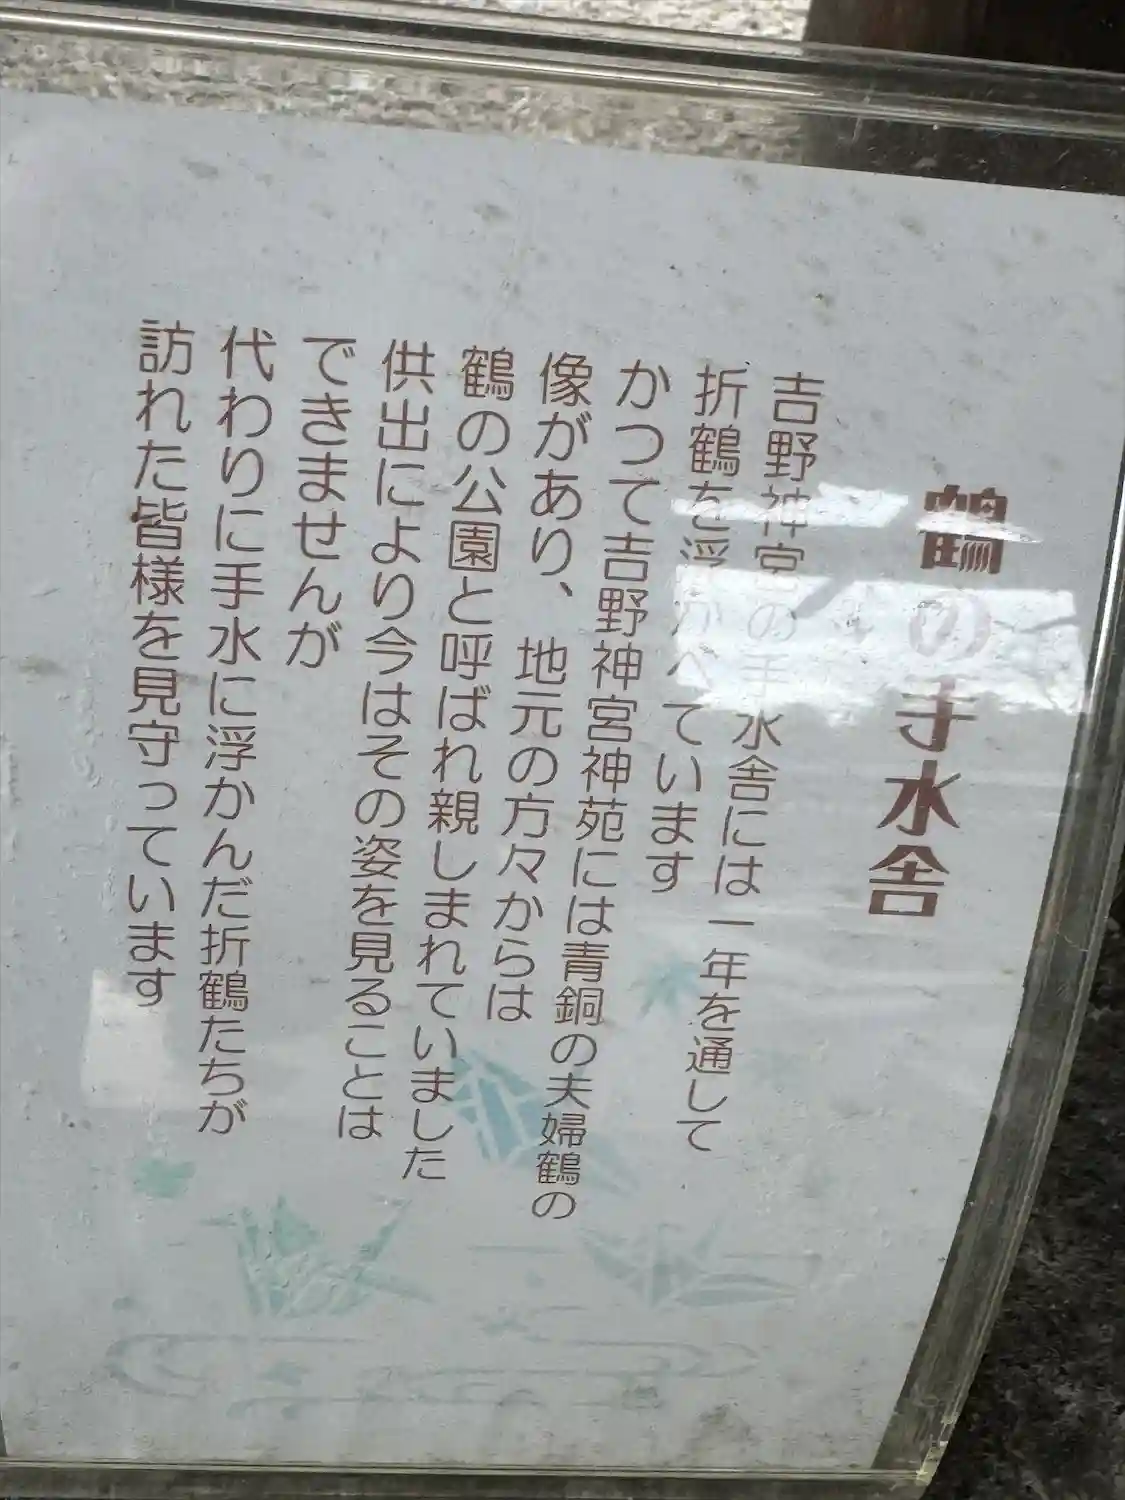 鶴の手水舎
吉野神宮の手水舎には一年を通して
折鶴を浮かべています
かつて吉野神宮神苑には青銅の夫婦鶴の
像があり、地元の方々からは
鶴の公園と呼ばれ親しまれていました
供出により今はその姿を見ることは
できませんが
代わりに手水に浮かんだ折鶴たちが
訪れた皆様を見守っています